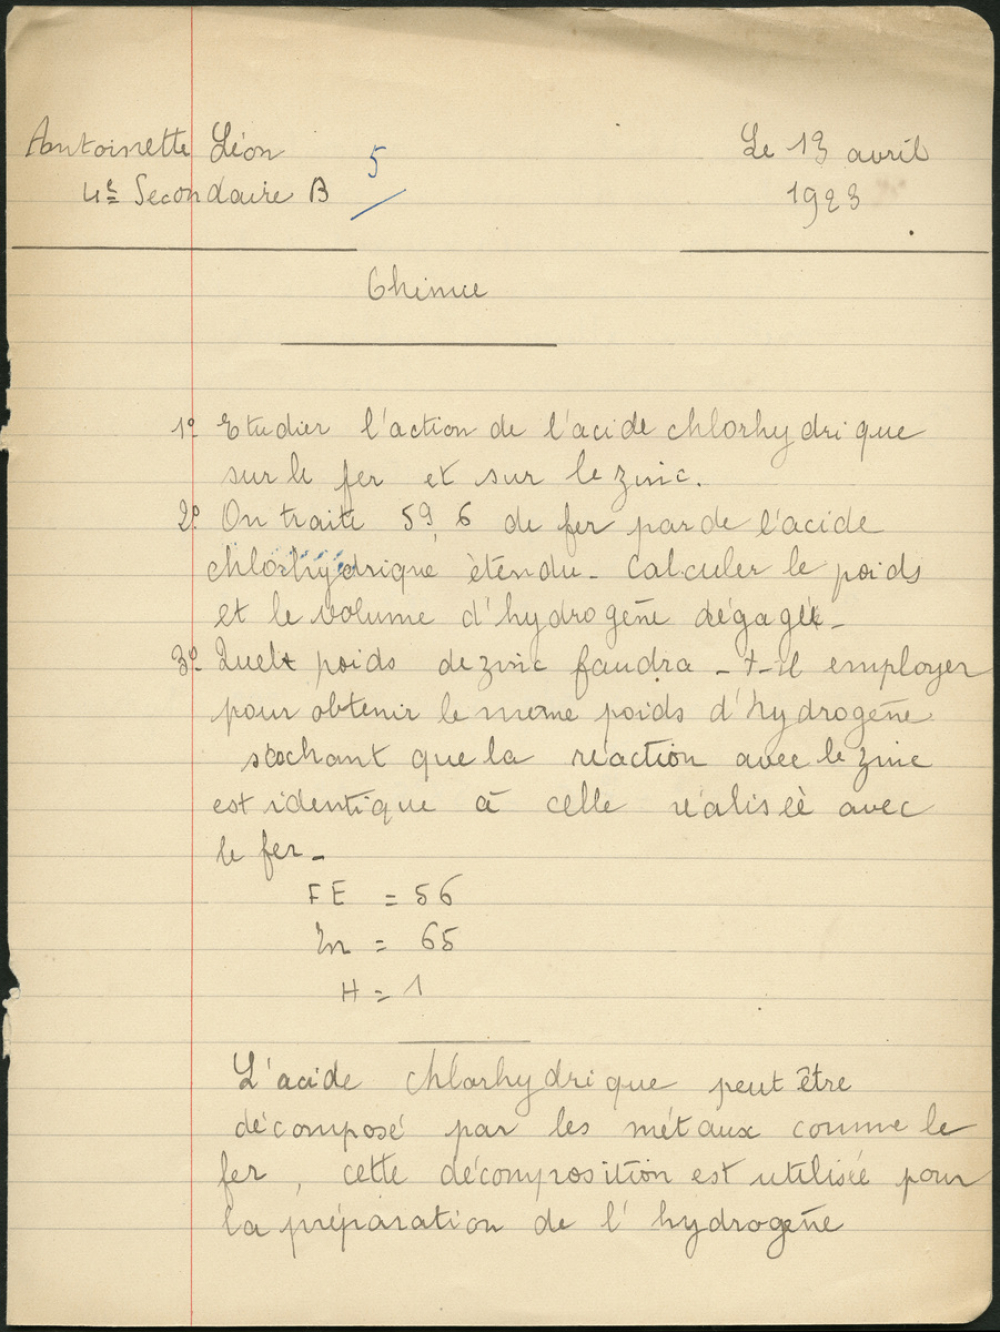 Antoinette Léon
5
Le 13 avril
4e Secondaire B
1923
Chimie
1º Etudier l'action de l'acide chlorhydrique
sur le fer et sur le zinc.
2º On traite 59,6 de fer par de l'acide
chlorhydrique étendu - Calculer le poids
et le volume d'hydrogène dégagée -
3º Quel poids de zinc faudra - t - il employer
pour obtenir le même poids d'hydrogène
sachant que la réaction avec le zinc
est identique à celle réalisée avec
le fer -
FE = 56
Zn = 65
H = 1
L'acide chlorhydrique peut être
décomposé par les métaux comme le
fer, cette décomposition est utilisée pour
la préparation de l'hydrogène